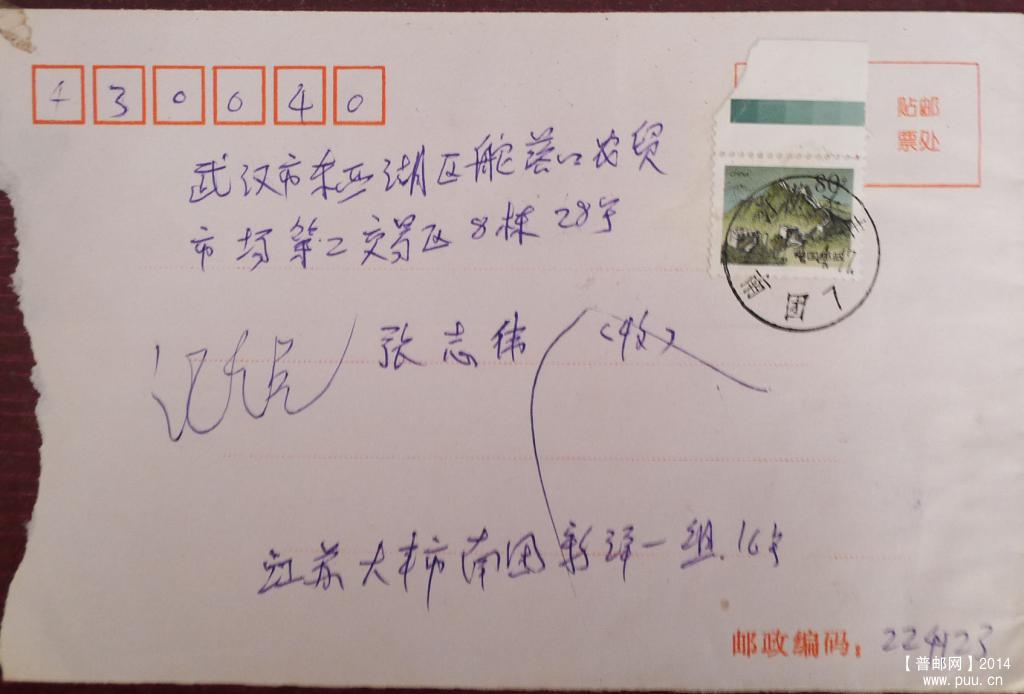 430040
贴邮
票处
武汉市东西湖区舵落口农贸
市场第二交易区8栋28号
CHINA
80
中国邮政
南团
张志伟 (收)
江苏大丰市南团新洋一组16号
邮政编码: 224123
【普邮网】2014
www.puu.cn